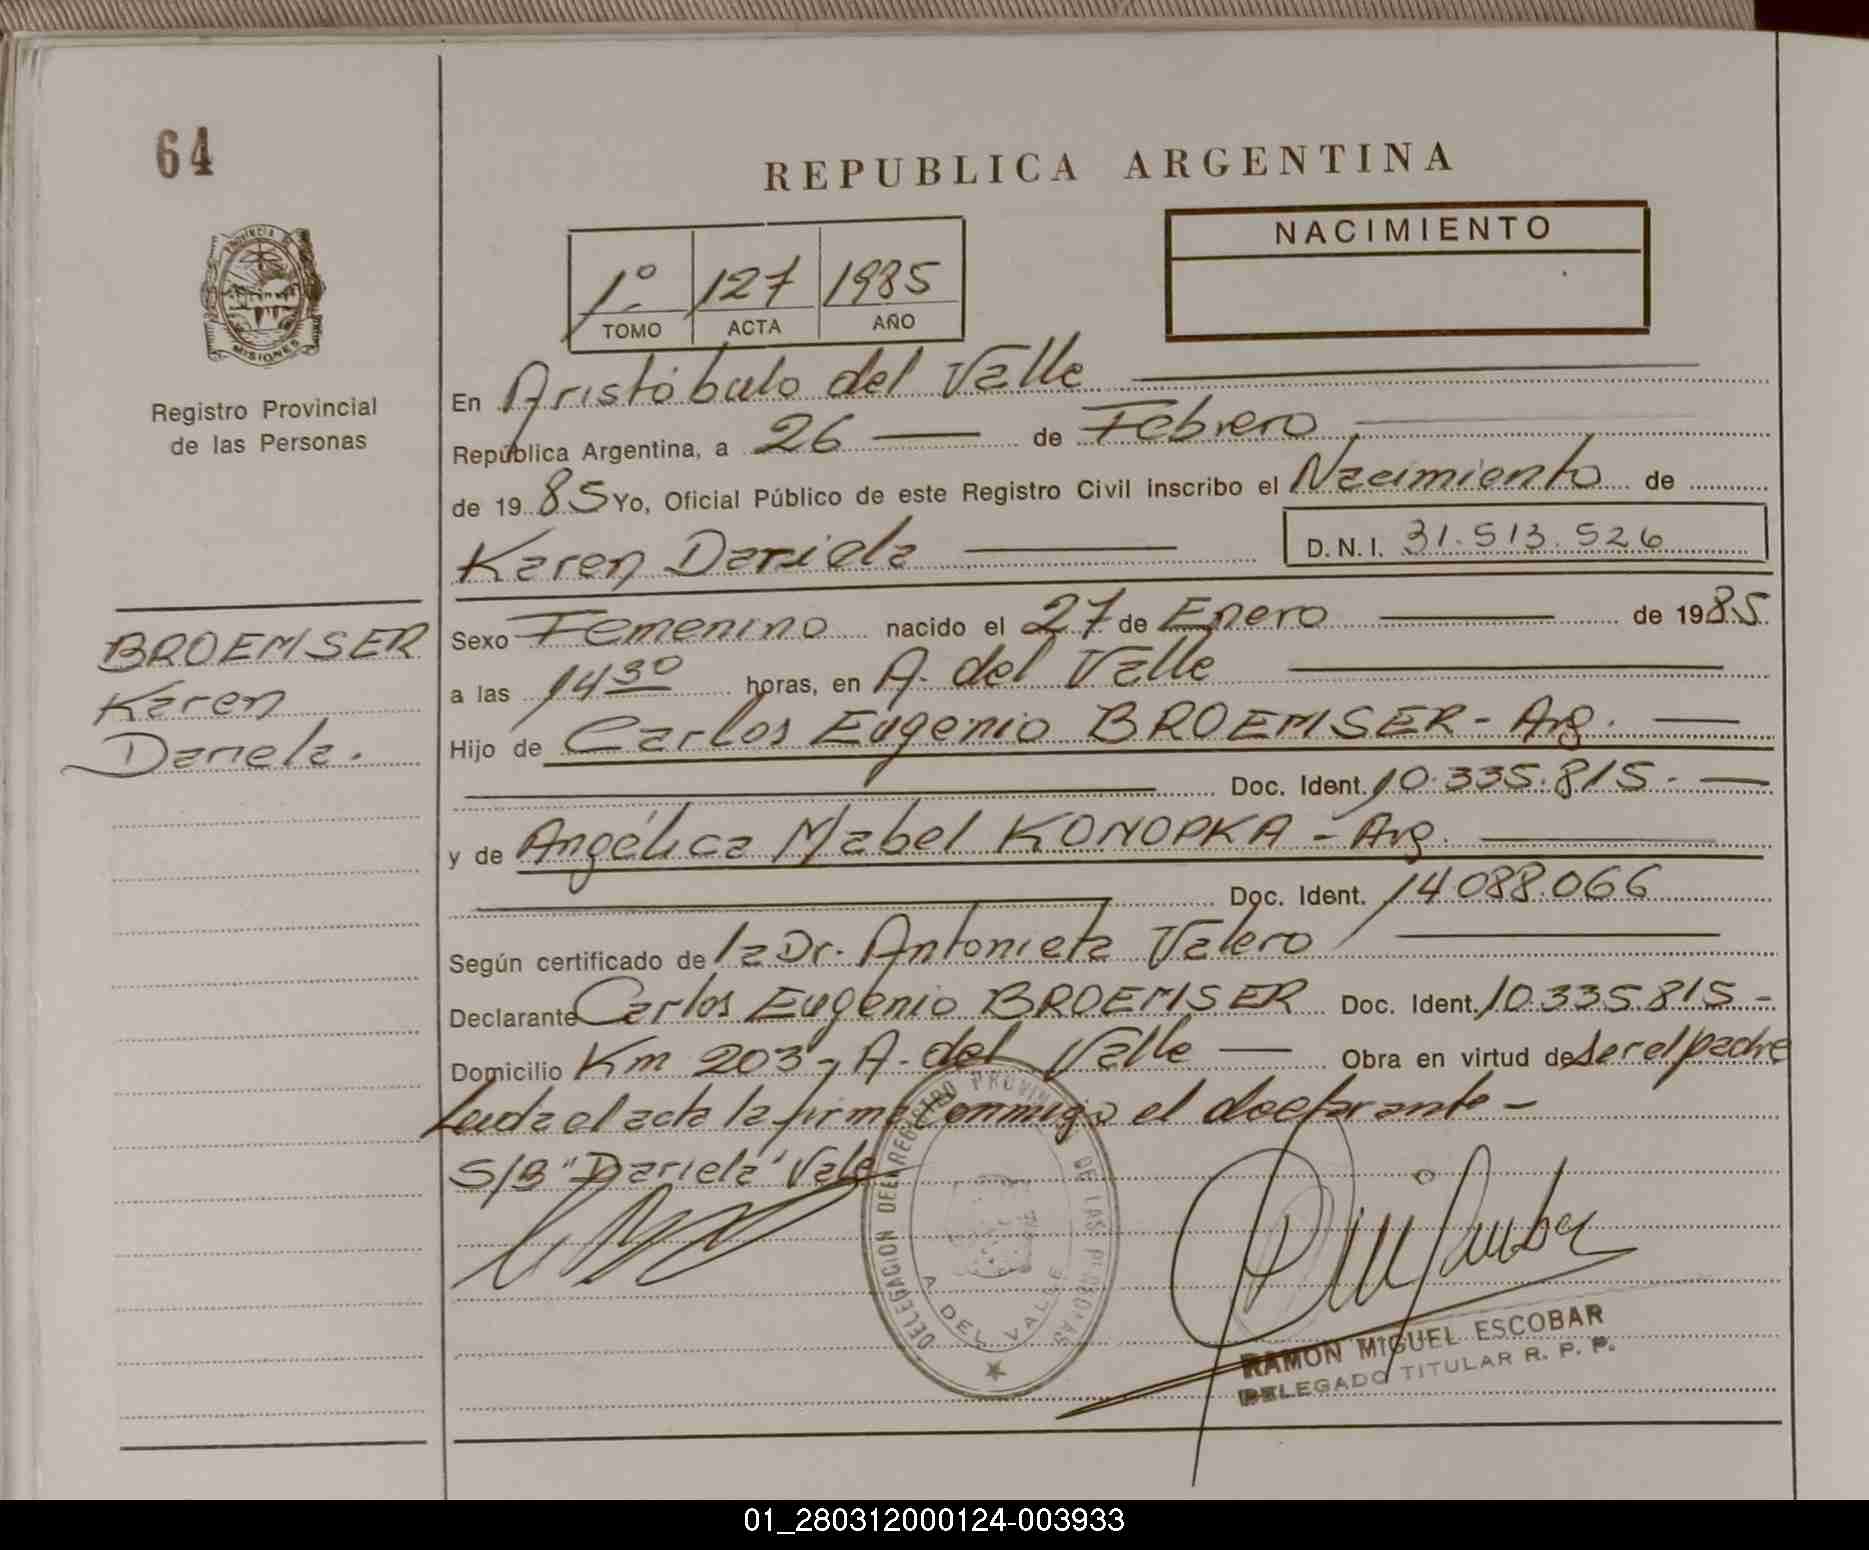 64
REPUBLICA ARGENTINA
PROVINCIA DE
MISIONES
Registro Provincial
de las Personas
1º 127 1985
TOMO ACTA AÑO
NACIMIENTO
En Aristóbulo del Valle
República Argentina, a 26 de Febrero
de 1985 Yo, Oficial Público de este Registro Civil inscribo el Nacimiento de
Karen Daniela D.N.I. 31.513.526
BROEMSER
Karen
Daniela.
Sexo Femenino nacido el 27 de Enero de 1985
a las 14 30 horas, en A. del Valle
Hijo de Carlos Eugenio BROEMSER - Arg.
Doc. Ident. 10.335.815.-
y de Angélica Mabel KONOPKA - Arg.
Doc. Ident. 14.088.066
Según certificado de la Dr. Antonieta Valero
Declarante Carlos Eugenio BROEMSER Doc. Ident. 10.335.815-
Domicilio Km 203 - A. del Valle Obra en virtud de ser el padre
Leida el acta la firma conmigo el declarante -
S/B "Daniela" Vale
DELEGACION DEL REGISTRO PROVINCIAL DE LAS PERSONAS
A. DEL VALLE
RAMON MIGUEL ESCOBAR
DELEGADO TITULAR R. P. P.
01_280312000124-003933